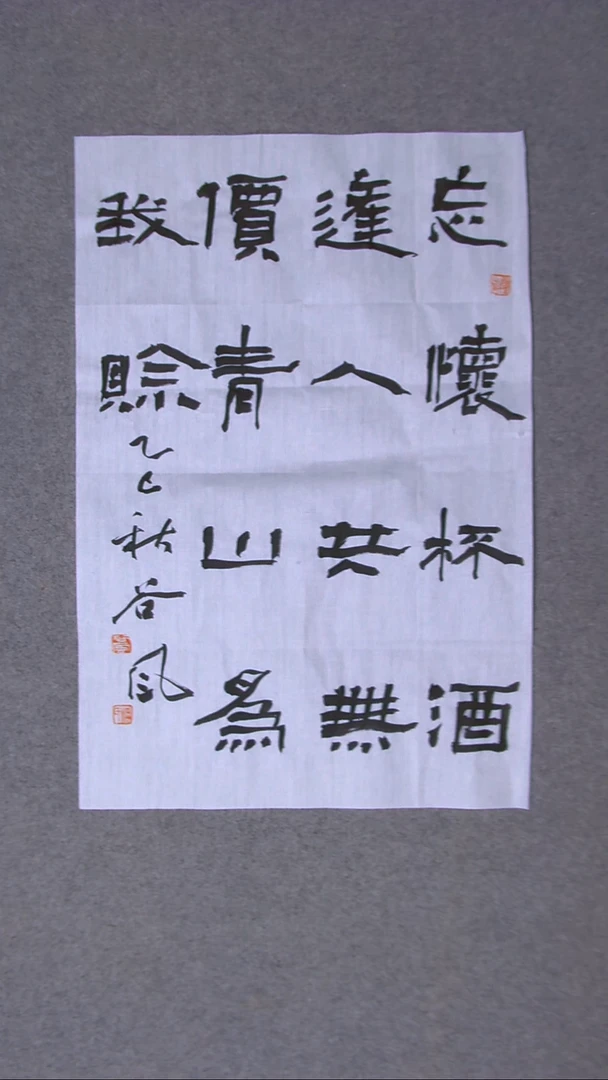 忘懷杯酒
達人共無
價青山為
我賒
乙巳秋谷風